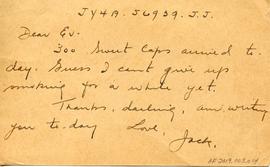 JY4A. J6959. J.J.
Dear Ev-
300 Sweet Caps arrived to-
day. Guess I can't give up
smoking for a while yet.
Thanks, darling, am writing
you to-day
Love,
Jack.
AF.2019.003.04